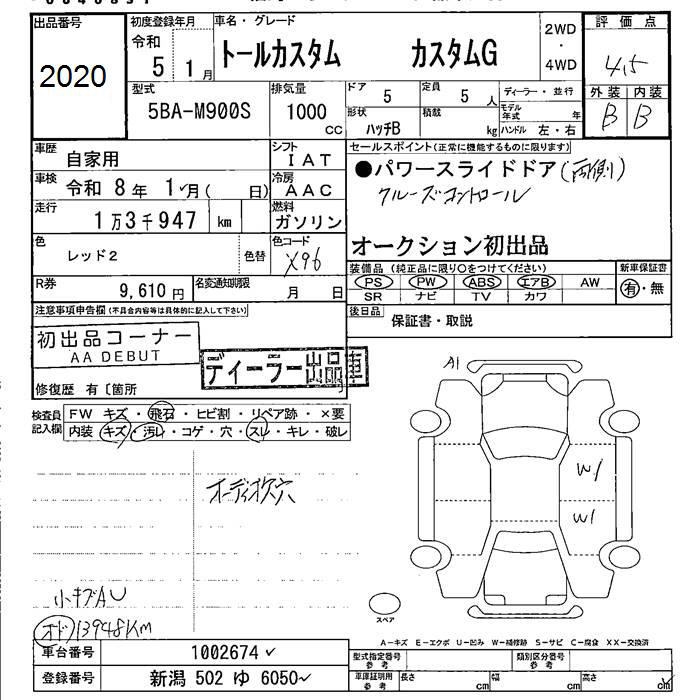 出品番号 初度登録年月 車名・グレード 評価点
2020 令和 5年 1月 トールカスタム カスタムG 2WD・4WD 4.5
型式 排気量 ドア 定員 ディーラー・並行 外装 内装
5BA-M900S 1000cc 5 5人 モデル年式 年 B B
形状 積載
ハッチB kg ハンドル 左・右
車歴 自家用 シフト IAT セールスポイント(正常に機能するものに限ります)
車検 令和 8年 1月( 日) 冷房 AAC ●パワースライドドア(両側)
走行 1万3千947 km 燃料 ガソリン クルーズコントロール
色 レッド2 色替 色コード X96 オークション初出品
R券 9,610円 名変通知期限 月 日 装備品(純正品に限り○をつけてください) 新車保証書
PS PW ABS エアB AW 有・無
SR ナビ TV カワ
注意事項申告欄(不具合内容等は具体的に記入して下さい) 後日品 保証書・取説
初出品コーナー
AA DEBUT
ディーラー出品車
修復歴 有〔箇所
A1
検査員記入欄 FW キズ・飛石・ヒビ割・リペア跡・×要
内装 キズ・汚れ・コゲ・穴・スレ・キレ・破レ
W1
W1
オーディオ欠穴
小キズAU
スペア
オド 13948KM
A-キズ E-エクボ U-凹み W-補修跡 S-サビ C-腐食 XX-交換済
車台番号 1002674 型式指定番号 参考 類別区分番号 参考
登録番号 新潟 502 ゆ 6050 車庫証明用 参考 長さ cm 幅 cm 高さ cm